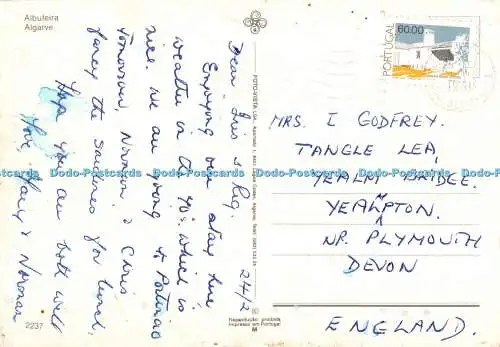 Albufeira
Algarve
24/2
Dear Iris & Reg.
Enjoying our stay here
weather in the 70s which is
nice. We are going to Portimao
tomorrow, Norman & Chris
fancy the sardines for lunch.
Hope you are both well
Love, & Norman
2237
FOTO-VISTA, LDA.
Reprodução proibida
Impresso em Portugal
M
PORTUGAL
60.00
MRS. I GODFREY.
TANGLE LEA,
YEALM BRIDGE.
YEALMPTON.
NR. PLYMOUTH
DEVON
ENGLAND.
Dodo-Postcards Dodo-Postcards Dodo-Postcards Dodo-Postcards Dodo-Postcards